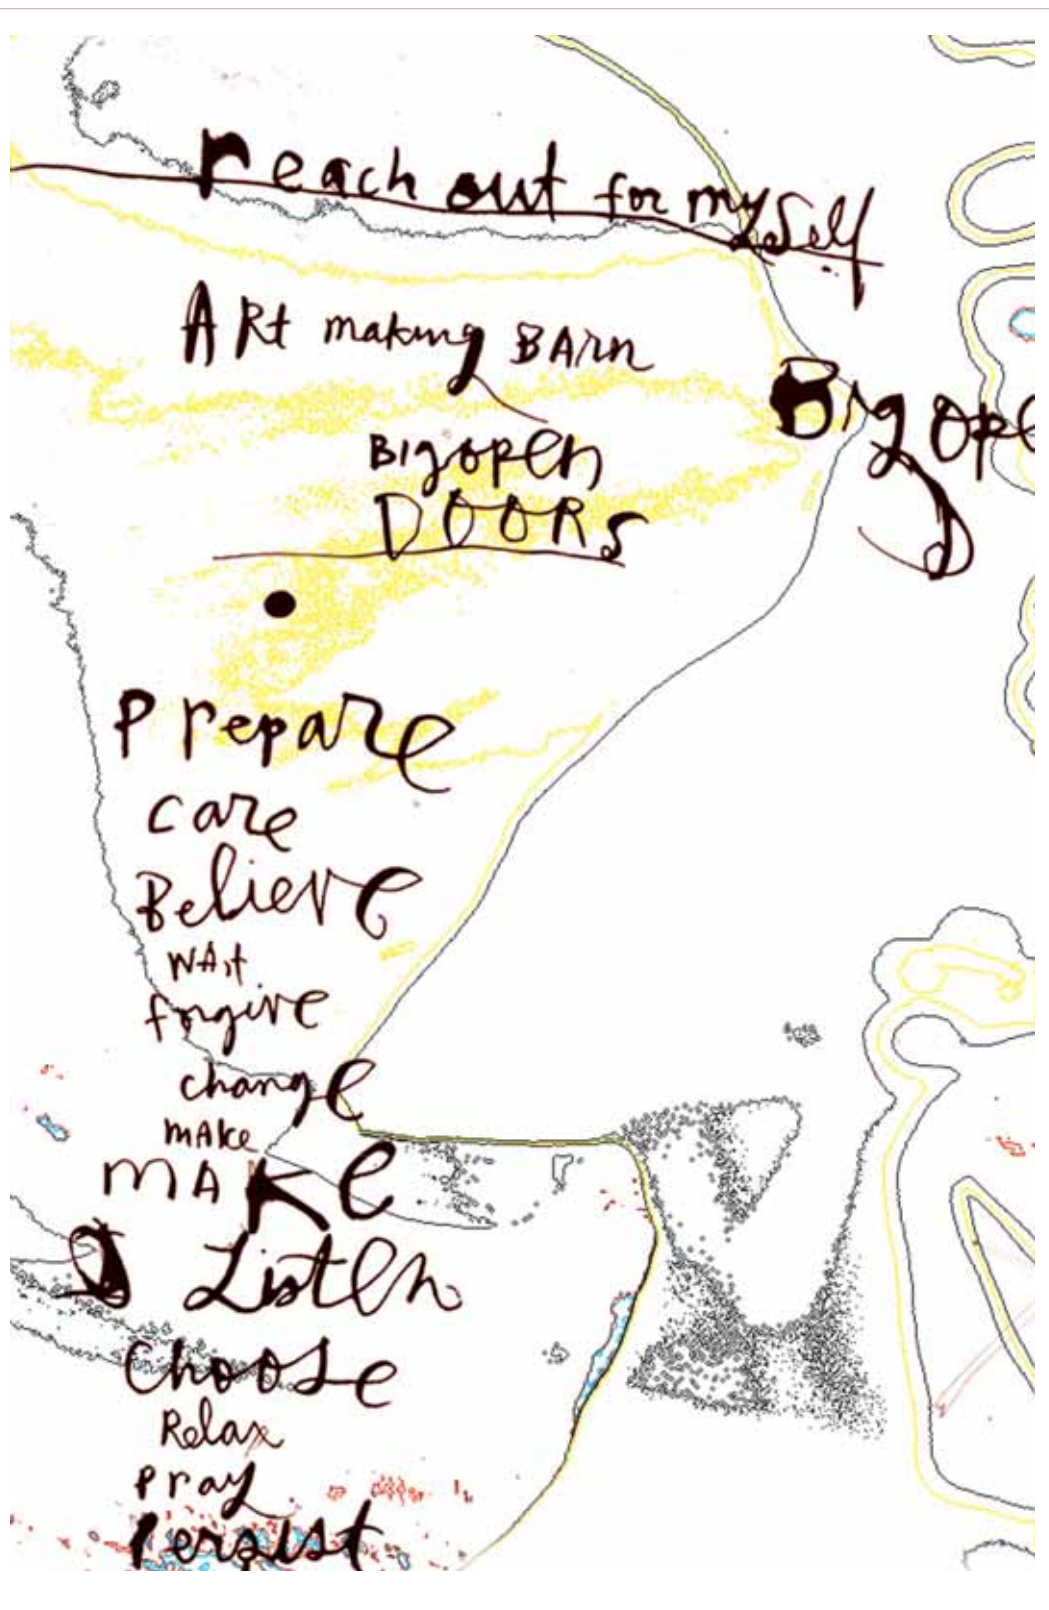 reach out for myself
ARt making BARn
Big ope
BIg open
DOORs
Prepare
care
Believe
WAit
forgive
change
MAke
MAKe
Listen
Choose
Relax
Pray
Persist